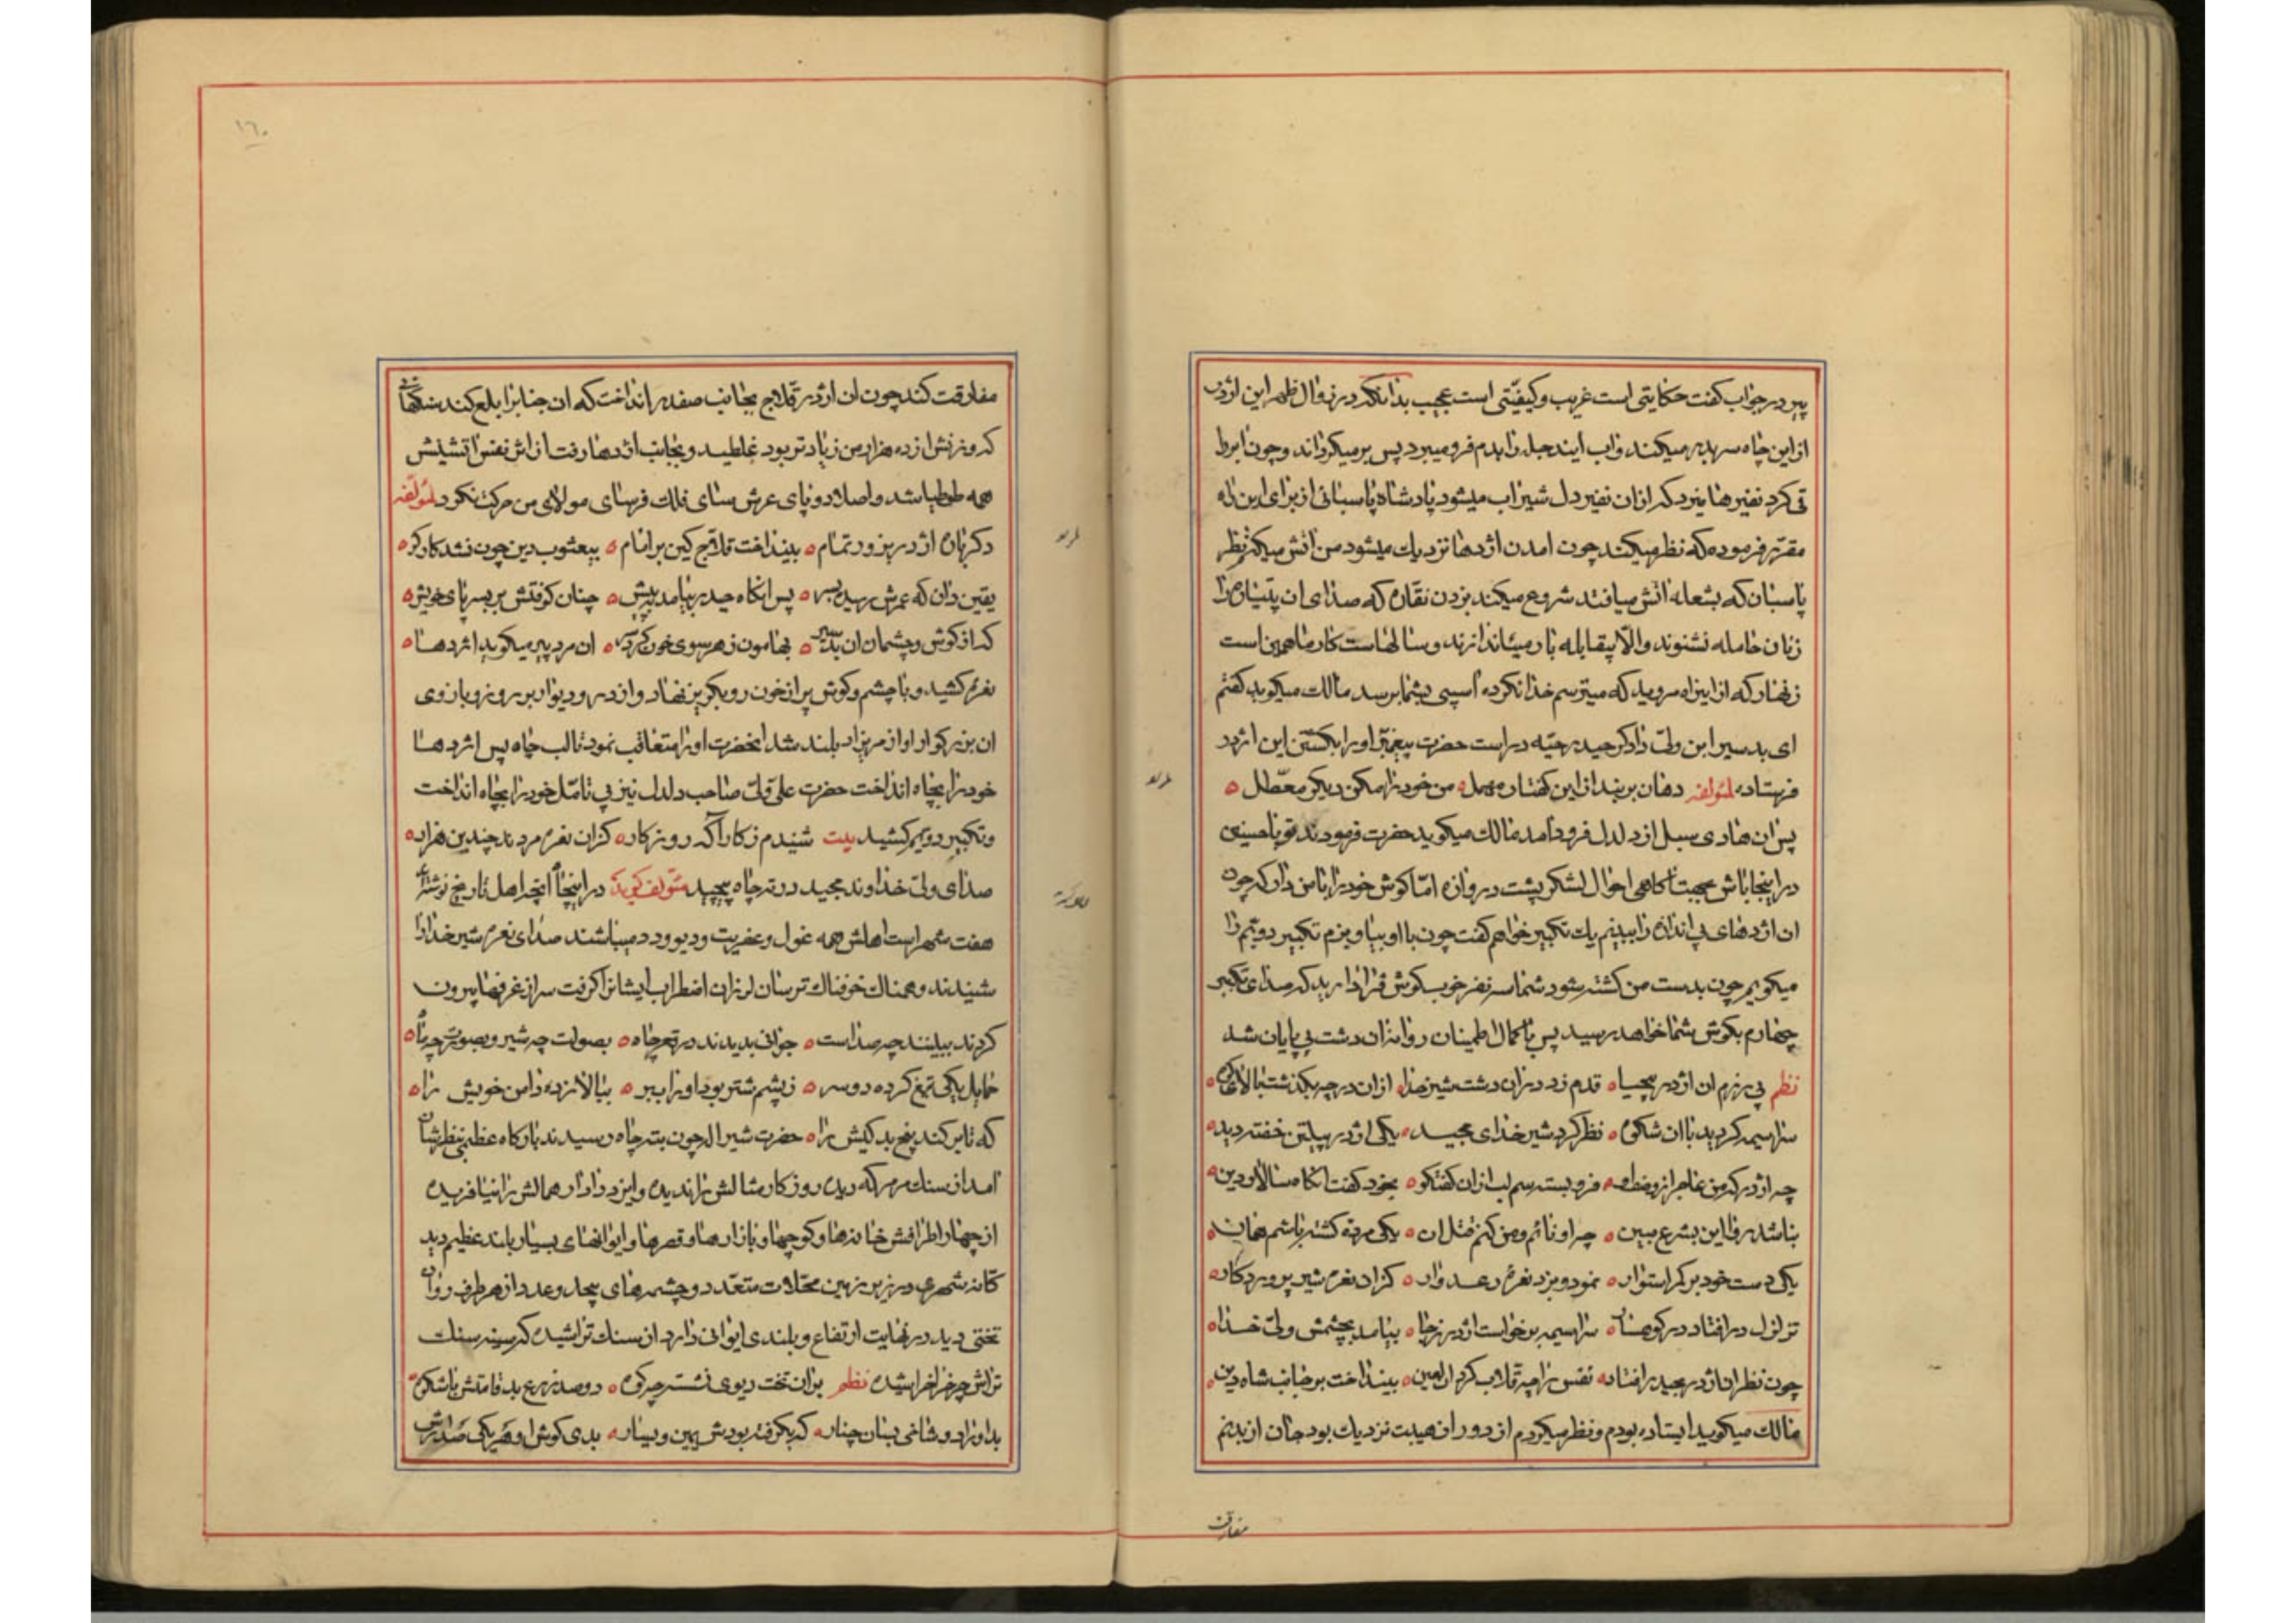 پیر در جواب گفت حکایتی است غریب و کیفیّتی است عجیب بدانکه در زوال ظهر این اژدر
از این چاه سر بدر میکند و اب ایند جبل را بدم فرو میبرد پس بر میگرداند و چون ابرا
قی کرد نفیر ها میزد که از ان نفیر دل شیر اب میشود پادشاه پاسبانی از برای این راه
مقرّر فرموده که نظر میکند چون امدن اژدها نزدیك میشود من اتش میکنم نظر
پاسبان که بشعله اتش میافتد شروع میکند بزدن نقاره که صدای ان پتیاره را
زنان حامله نشنوند والّا بیقابله بار میاندازند و سالهاست کار ما همین است
زنهار که از این راه مروید که میترسم خدا نکرده اسیبی بشما برسد مالك میکوید کفتم
ای بد سیر ابن ولیّ دادگر حیدر حیّه در است حضرت پیغمبر او را بکشتن این اژدر
فرستاده لمؤلفه دهان بر بند از این کفتار مهمل من خود را مکن دیکر معطّل
پس ان هادی سبل از دلدل فرود امد مالك میکوید حضرت فرمودند تو با حسنین
در اینجا باش عجبتاً کاهی احوال لشکر پشت دروازه امّا کوش خود را با من دار که چون
ان اژدهای بی اندازه را ببینم یك تکبیر خواهم کفت چون با او بیاویزم تکبیر دویّم را
میکویم چون بدست من کشته شود شما سه نفر خوب کوش فرا دارید که صدای تکبیر
چهارم بکوش شما خواهد رسید پس با کمال اطمینان روانه ان دشت بی پایان شد
نظم پی رزم ان اژدر بیحیا قدم زد در ان دشت شیر خدا از ان درّه چه بکذشت بالای کوه
سراسیمه کردید با ان شکوه نظر کرد شیر خدای مجید یکی اژدر پیلتن خفته دید
چه اژدر که من عاجز از وصف او فرو بسته رسم لب از ان کفتکو بخود کفت انکاه سالار دین
نباشد روا این بشرع مبین چه او نائم و من کنم قتل ان یکی مرده کشته باشم همان
یکی دست خود بر کمر استوار نمود و بزد نعره رعد وار کز ان نعره شیر پروردکار
تزلزل در افتاد در کوهسار سراسیمه برخواست اژدر ز جا بیامد بچشمش ولیّ خدا
چون نظر ان اژدر بحیدر افتاد نفس را چه قلاب کرد ان لعین بینداخت بر جانب شاه دین
مالك میکوید ایستاده بودم و نظر میکردم از دور از هیبت نزدیك بود جان از بدنم
مفارقت
١٦٠
مفارقت کند چون ان اژدر قلاج بجانب صفدر انداخت که ان جنابرا بلع کند سنکهائی
که وزنش از ده هزار من زیادتر بود غلطید و بجانب اژدها رفت از اثر نفس اتشینش
همه طوطیا شد و اصلا دو پای عرش سای فلك فرسای مولای من حرکت نکرد لمؤلفه
دکر باره اژدر بزور تمام بینداخت قلاج کین بر امام بیعثوب دین چون نشد کارکر
یقین دان که عمرش رسیده بسر پس انکاه حیدر بیامد به پیش چنان کوفتش بر بسر پای خویش
که از کوش و چشمان ان بد سیر بهامون ز هر سوی خون کرد سر ان مرد پیر میکوید اژدها
نعره کشید و با چشم و کوش پر از خون رو بکریز نهاد و از در و دیوار بر روز و بازوی
ان بزرکوار اواز مریزاد بلند شد انحضرت او را متعاقب نمود تا لب چاه پس اژدها
خود را بچاه انداخت حضرت علی ولیّ صاحب دلدل نیز بی تامّل خود را بچاه انداخت
و تکبیر دویّم کشید بیت شنیدم ز کار آکه روزکار کز ان نعره مردند چندین هزار
صدای ولیّ خداوند مجید در ته چاه پیچید مؤلف کوید در اینجا انچه اهل تاریخ نوشته اند
هفت شهر است اهلش همه غول و عفریت و دیو و دد میباشند صدای نعره شیر خدا را
شنیدند و همناك خوفناك ترسان لرزان اضطراب ایشانرا کرفت سر از غرفها بیرون
کردند ببینند چه صداست جوانی بدیدند در قعر چاه بصولت چه شیر و بصورت چه ماه
حمایل یکی تیغ کرده دو سر ز پشم شتر بود او را ببر ببالا زده دامن خویش را
که تا بر کند پنج بد کیش را حضرت شیر اله چون بته چاه رسیدند بارکاه عظیمی بنظرشان
امد از سنك مرمر که دیده روزکار مثالش را ندیده و ایزد دادار همالش را نیافریده
از چهار اطرافش خانه ها و کوچها و بازارها و قصرها و ایوانهای بسیار بلند عظیم دید
کانه شهری در زیر زمین محلّات متعدّد و چشمه های بیحد و عدد از هر طرف روان
تختی دید در نهایت ارتفاع و بلندی ایوانی دارد از سنك تراشیده که سینه سنك
تراش چرخ را خراشیده نظم بر ان تخت دیوی نشسته چه کوه دو صد زرع بد قامتش با شکوه
بد او را دو شاخی بسان چنار که بکرفته بودش یمین و یسار بدی کوش او هر یکی صد ارش